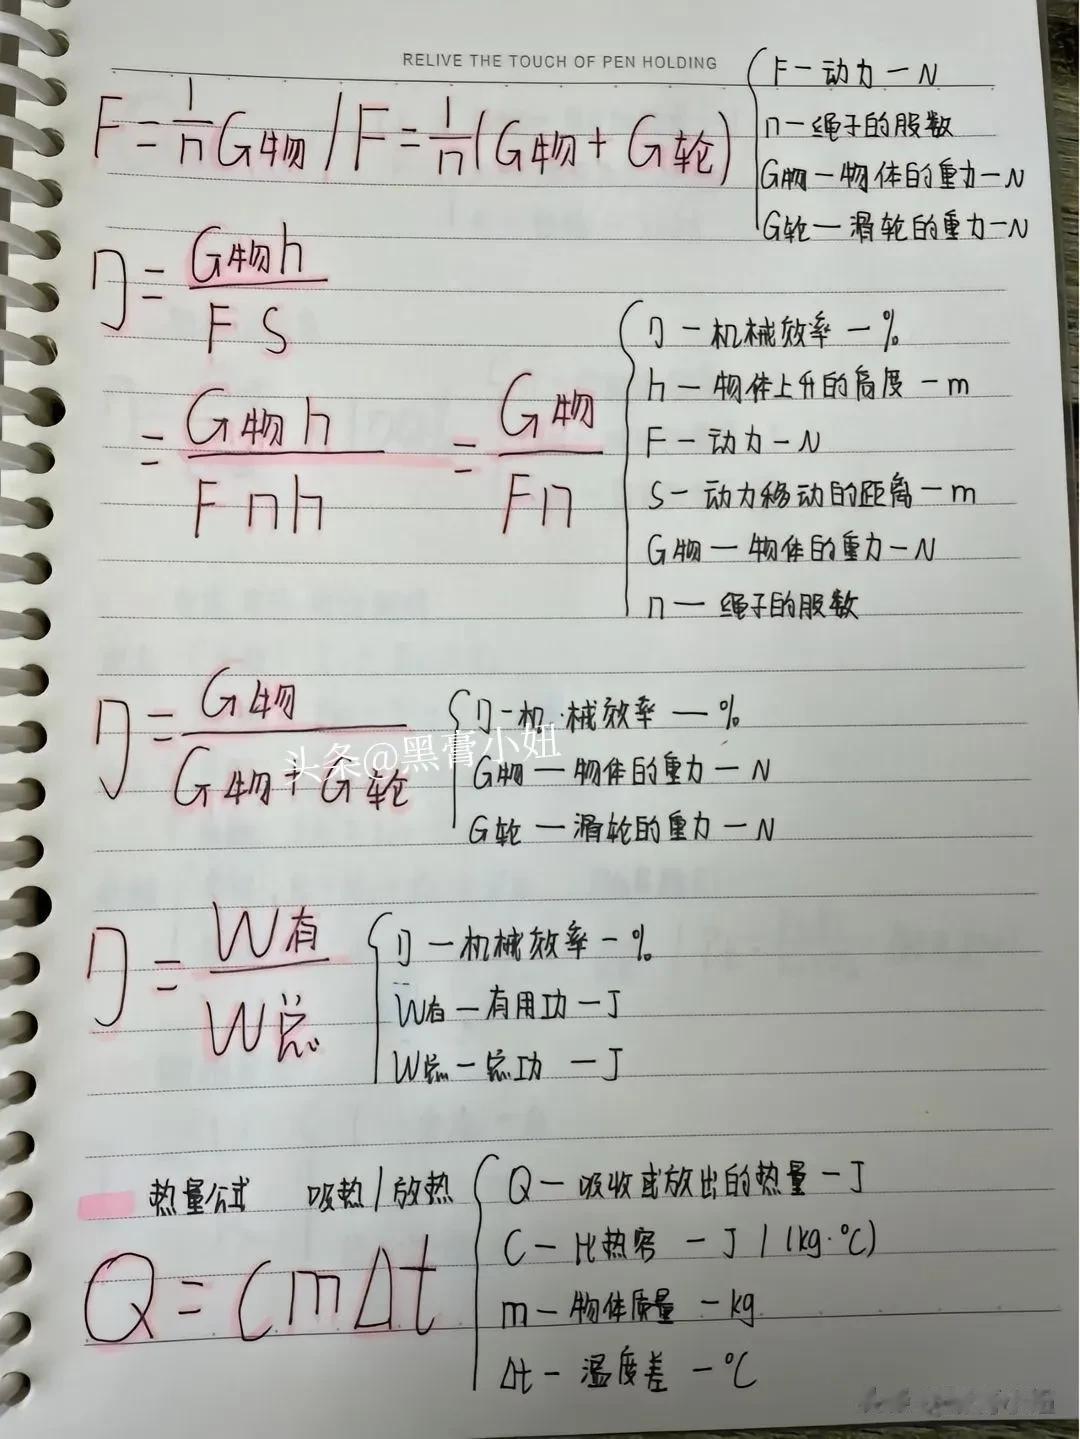 RELIVE THE TOUCH OF PEN HOLDING
F = 1/n G物 / F = 1/n (G物 + G轮)
F — 动力 — N
n — 绳子的股数
G物 — 物体的重力 — N
G轮 — 滑轮的重力 — N
η = G物h / FS
= G物h / Fnh = G物 / Fn
η — 机械效率 — %
h — 物体上升的高度 — m
F — 动力 — N
S — 动力移动的距离 — m
G物 — 物体的重力 — N
n — 绳子的股数
η = G物 / G物 + G轮
η — 机械效率 — %
G物 — 物体的重力 — N
G轮 — 滑轮的重力 — N
头条@黑膏小妞
η = W有 / W总
η — 机械效率 — %
W有 — 有用功 — J
W总 — 总功 — J
热量公式 吸热 / 放热
Q = cmΔt
Q — 吸收或放出的热量 — J
C — 比热容 — J / (kg·℃)
m — 物体质量 — kg
Δt — 温度差 — ℃